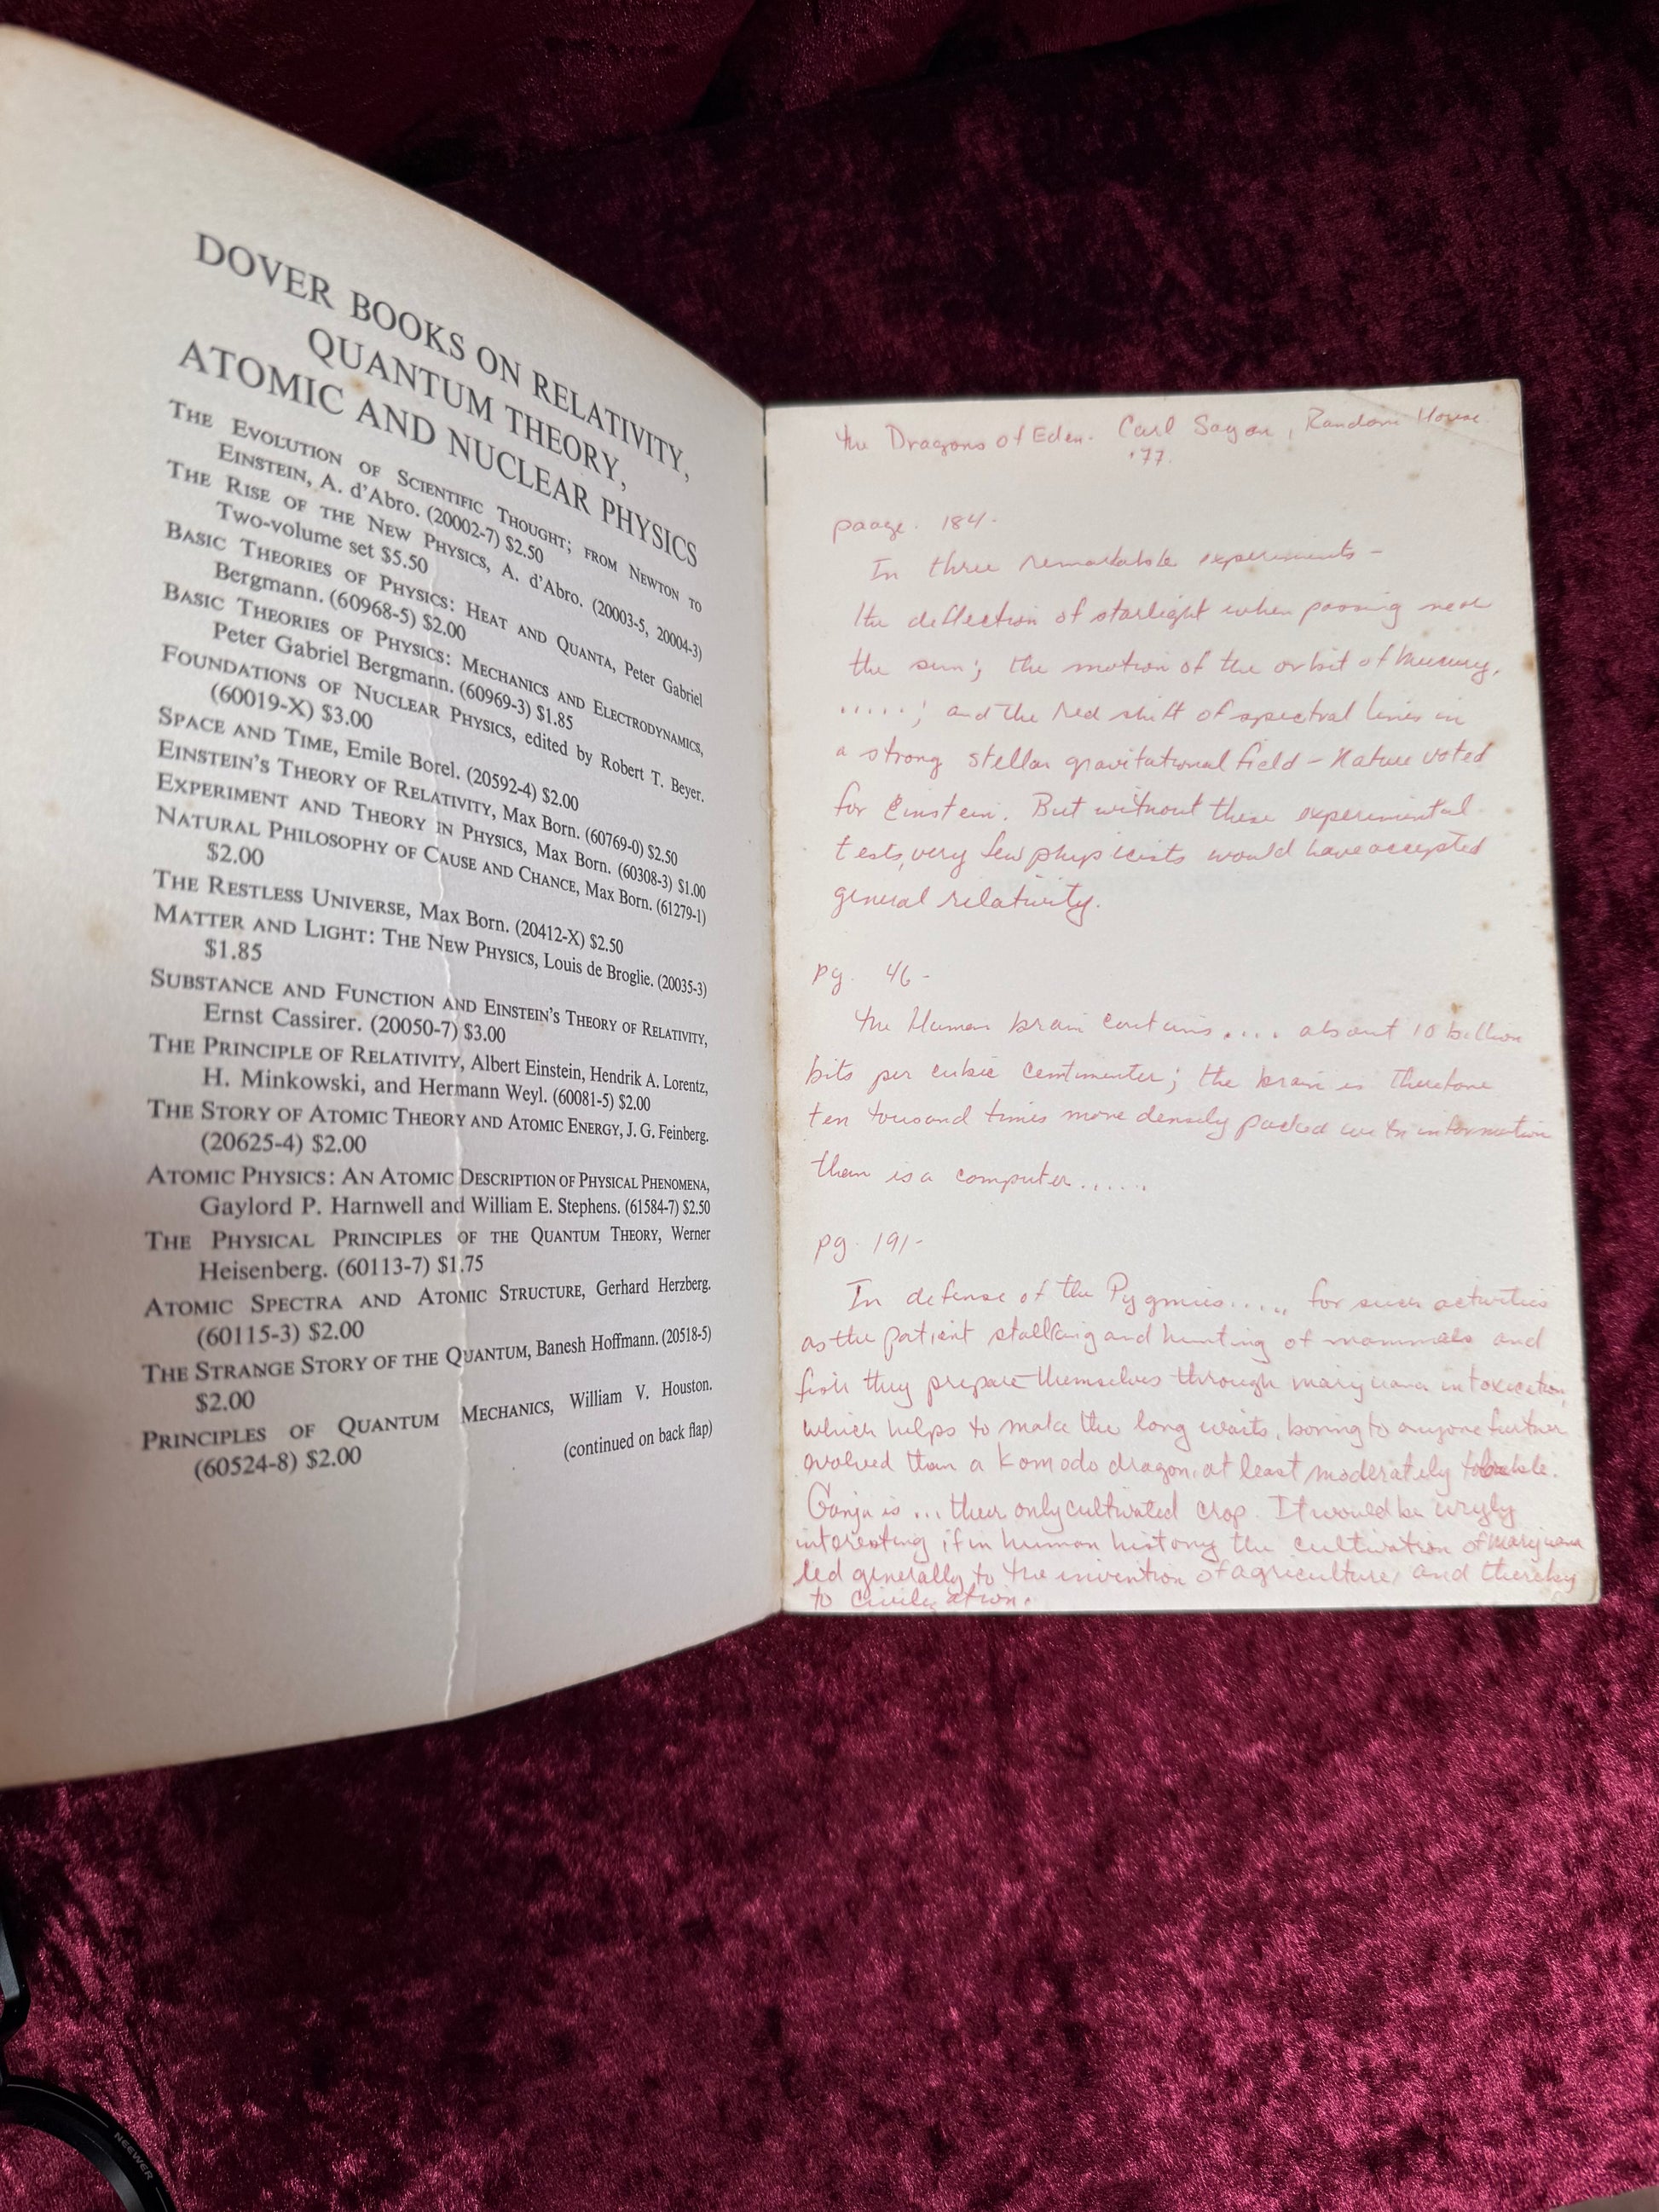 DOVER BOOKS ON RELATIVITY,
QUANTUM THEORY,
ATOMIC AND NUCLEAR PHYSICS
THE EVOLUTION OF SCIENTIFIC THOUGHT; FROM NEWTON TO
EINSTEIN, A. d'Abro. (20002-7) $2.50
THE RISE OF THE NEW PHYSICS, A. d'Abro. (20003-5, 20004-3)
Two-volume set $5.50
BASIC THEORIES OF PHYSICS: HEAT AND QUANTA, Peter Gabriel
Bergmann. (60968-5) $2.00
BASIC THEORIES OF PHYSICS: MECHANICS AND ELECTRODYNAMICS,
Peter Gabriel Bergmann. (60969-3) $1.85
FOUNDATIONS OF NUCLEAR PHYSICS, edited by Robert T. Beyer.
(60019-X) $3.00
SPACE AND TIME, Emile Borel. (20592-4) $2.00
EINSTEIN'S THEORY OF RELATIVITY, Max Born. (60769-0) $2.50
EXPERIMENT AND THEORY IN PHYSICS, Max Born. (60308-3) $1.00
NATURAL PHILOSOPHY OF CAUSE AND CHANCE, Max Born. (61279-1)
$2.00
THE RESTLESS UNIVERSE, Max Born. (20412-X) $2.50
MATTER AND LIGHT: THE NEW PHYSICS, Louis de Broglie. (20035-3)
$1.85
SUBSTANCE AND FUNCTION AND EINSTEIN'S THEORY OF RELATIVITY,
Ernst Cassirer. (20050-7) $3.00
THE PRINCIPLE OF RELATIVITY, Albert Einstein, Hendrik A. Lorentz,
H. Minkowski, and Hermann Weyl. (60081-5) $2.00
THE STORY OF ATOMIC THEORY AND ATOMIC ENERGY, J. G. Feinberg.
(20625-4) $2.00
ATOMIC PHYSICS: AN ATOMIC DESCRIPTION OF PHYSICAL PHENOMENA,
Gaylord P. Harnwell and William E. Stephens. (61584-7) $2.50
THE PHYSICAL PRINCIPLES OF THE QUANTUM THEORY, Werner
Heisenberg. (60113-7) $1.75
ATOMIC SPECTRA AND ATOMIC STRUCTURE, Gerhard Herzberg.
(60115-3) $2.00
THE STRANGE STORY OF THE QUANTUM, Banesh Hoffmann. (20518-5)
$2.00
PRINCIPLES OF QUANTUM MECHANICS, William V. Houston.
(60524-8) $2.00
(continued on back flap)
the Dragons of Eden. Carl Sagan, Random House
'77.
paage. 184.
In three remarkable experiments -
the deflection of starlight when passing near
the sun; the motion of the orbit of Mercury,
.....; and the red shift of spectral lines in
a strong stellar gravitational field - Nature voted
for Einstein. But without these experimental
tests, very few physicists would have accepted
general relativity.
pg. 46 -
the Human brain contains.... about 10 billion
bits per cubic centimenter; the brain is therefore
ten tousand times more densely packed with information
than is a computer......
pg. 191 -
In defense of the Pygmies..... for such activities
as the patient stalking and hunting of mammals and
fish they prepare themselves through marijuana intoxication,
which helps to make the long waits, boring to anyone further
evolved than a Komodo dragon, at least moderately
Ganja is ... their only cultivated crop. It would be wryly
interesting if in human history the cultivation of marijuana
led generally to the invention of agriculture, and thereby
to civilization.
NEEWER